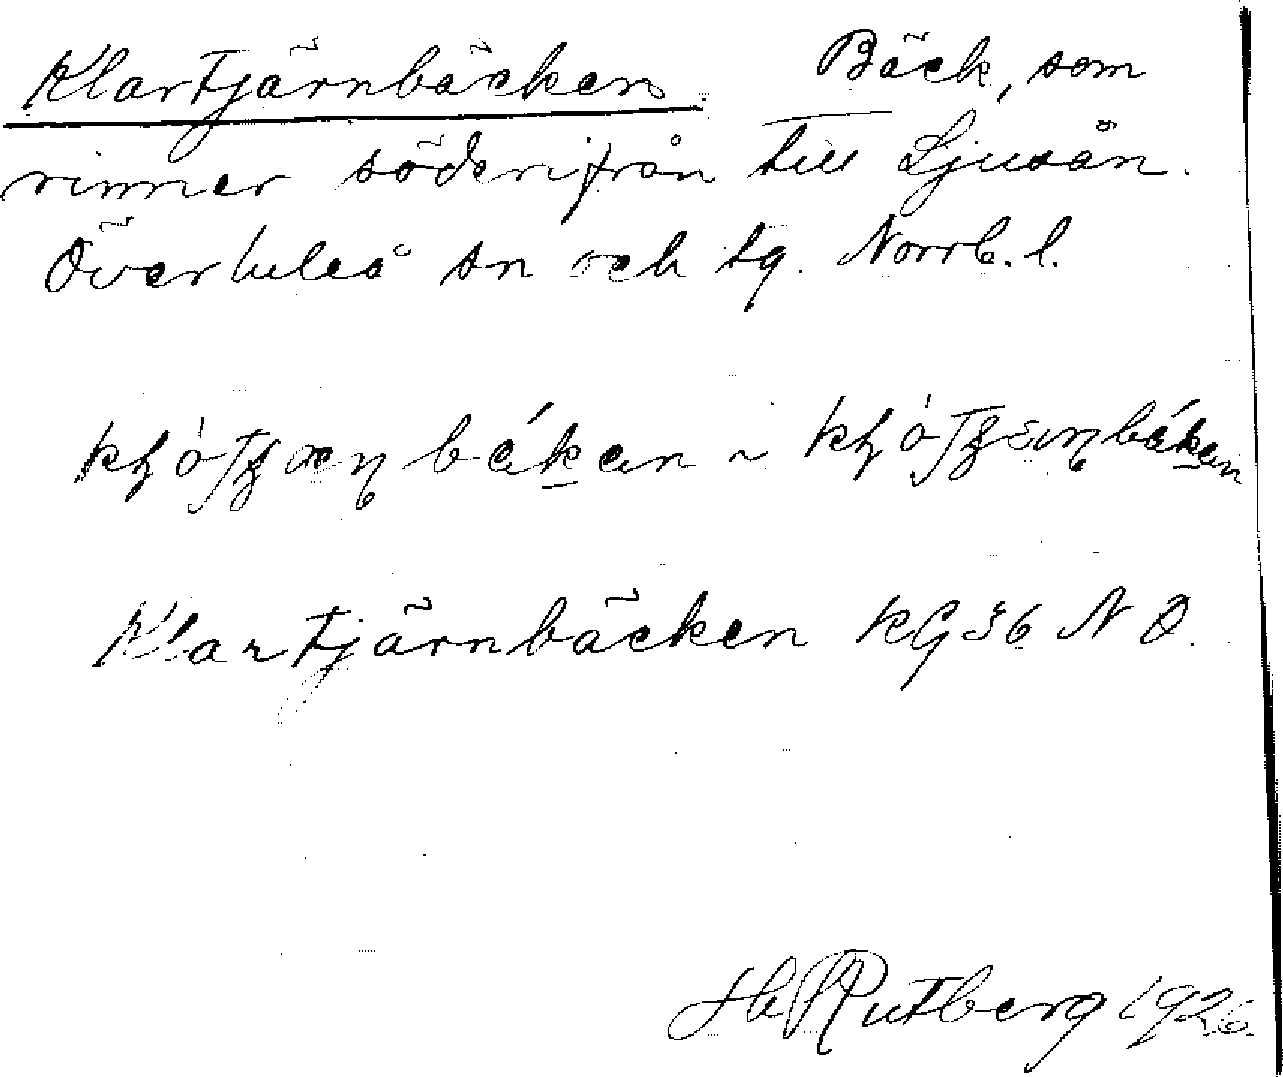 Klartjärnbäcken Bäck, som
rinner söderifrån till Ljusån.
Överluleå sn och tg. Norrb. l.
Klartjärnbäcken KG 36 N O.
Hb Rutberg 1926